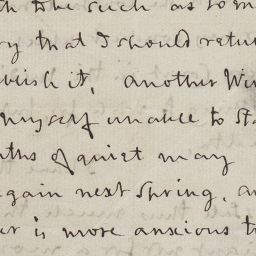 to be such as to m
ry that I should retu
blish it, another Wi
myself unable to sta
nths of quiet may
again next Spring, an
er is more anxious t